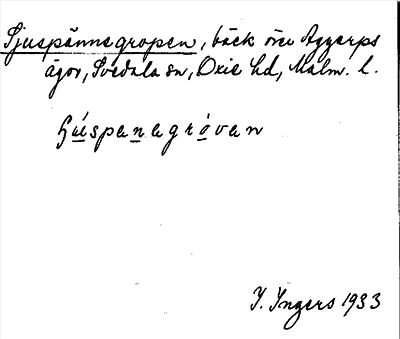 Sjuspännegropen, bäck öve Aggarps
ägor, Svedala sn, Oxie hd, Malm. l.
Húspanagróvan
I. Ingers 1933